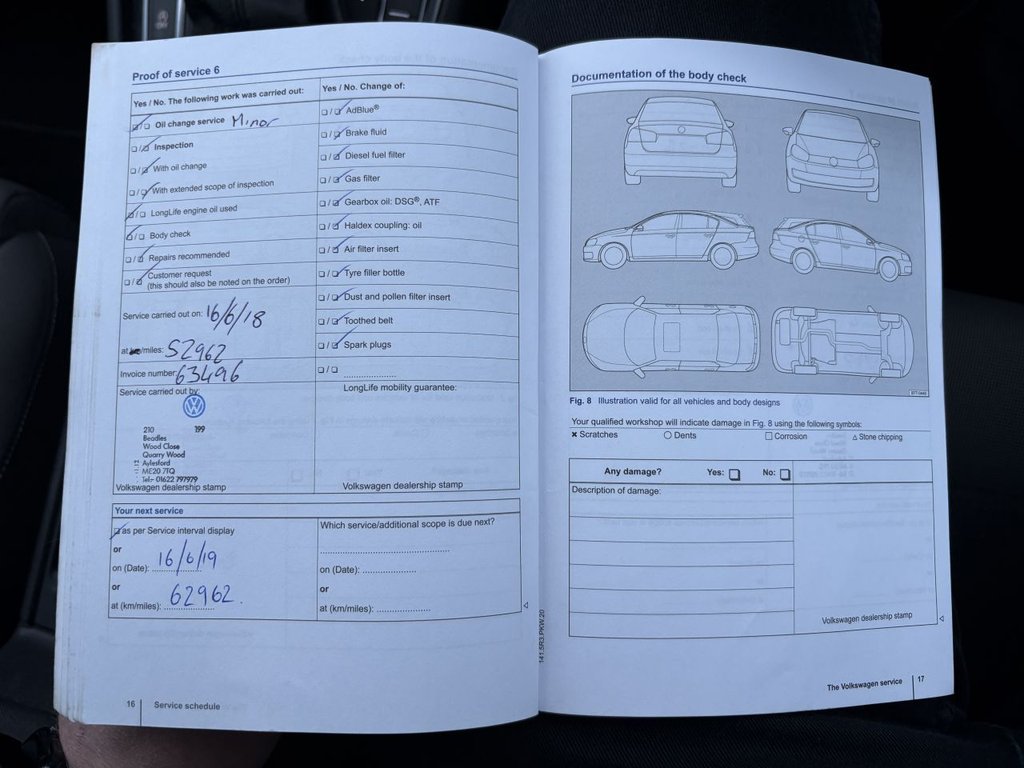 Proof of service 6
Yes / No. The following work was carried out:
Oil change service Minor
Inspection
With oil change
With extended scope of inspection
LongLife engine oil used
Body check
Repairs recommended
Customer request
(this should also be noted on the order)
Service carried out on: 16/6/18
at km/miles: 52962
Invoice number: 63496
Service carried out by:
210 199
Beadles
Wood Close
Quarry Wood
Aylesford
ME20 7TQ
Tel:- 01622 797979
Volkswagen dealership stamp
Yes / No. Change of:
AdBlue®
Brake fluid
Diesel fuel filter
Gas filter
Gearbox oil: DSG®, ATF
Haldex coupling: oil
Air filter insert
Tyre filler bottle
Dust and pollen filter insert
Toothed belt
Spark plugs
LongLife mobility guarantee:
Volkswagen dealership stamp
Your next service
as per Service interval display
or
on (Date): 16/6/19
or
at (km/miles): 62962.
Which service/additional scope is due next?
on (Date):
or
at (km/miles):
16 Service schedule
141.5R3.PKW.20
Documentation of the body check
Fig. 8 Illustration valid for all vehicles and body designs
Your qualified workshop will indicate damage in Fig. 8 using the following symbols:
× Scratches ○ Dents □ Corrosion △ Stone chipping
Any damage? Yes: □ No: □
Description of damage:
Volkswagen dealership stamp
The Volkswagen service 17